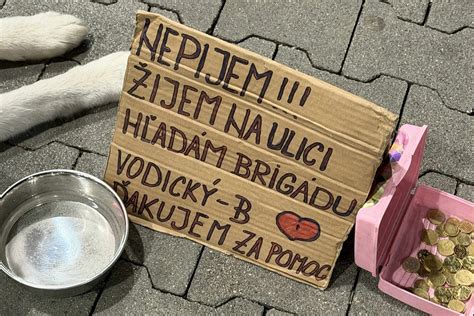 NEPIJEM!!!
ŽIJEM NA ULICI
HĽADÁM BRIGÁDU
VODICKÝ-B
ĎAKUJEM ZA POMOC